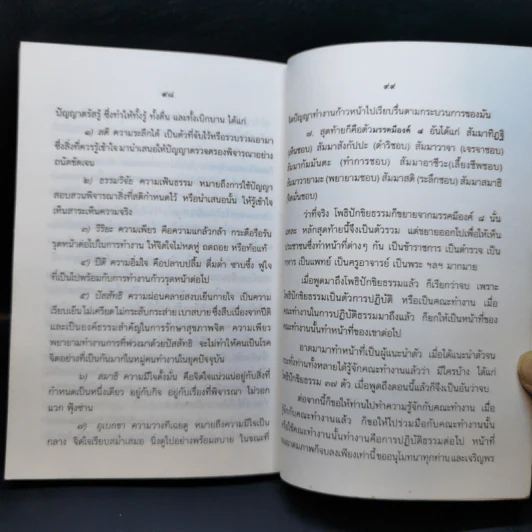 ๙๘
ปัญญาตรัสรู้ ซึ่งทำให้ทั้งรู้ ทั้งตื่น และทั้งเบิกบาน ได้แก่
๑) สติ ความระลึกได้ เป็นตัวที่จับไว้หรือรวบรวมเอามา
ซึ่งสิ่งที่ควรรู้เข้าใจ มานำเสนอให้ปัญญาตรวจตรองพิจารณาอย่าง
ถนัดชัดเจน
๒) ธรรมวิจัย ความเฟ้นธรรม หมายถึงการใช้ปัญญา
สอบสวนพิจารณาสิ่งที่สติกำหนดไว้ หรือนำเสนอนั้น ให้รู้เข้าใจ
เห็นสาระเห็นความจริง
๓) วิริยะ ความเพียร คือความแกล้วกล้า กระตือรือร้น
รุดหน้าต่อไปในการทำงาน ให้จิตใจไม่หดหู่ ถดถอย หรือท้อแท้
๔) ปีติ ความอิ่มใจ คือปลาบปลื้ม ดื่มด่ำ ซาบซึ้ง ฟูใจ
ที่เป็นไปพร้อมกับการทำงานก้าวรุดหน้าต่อไป
๕) ปัสสัทธิ ความผ่อนคลายสงบเย็นกายใจ เป็นความ
เรียบเย็นไม่เครียดไม่กระสับกระส่าย เบาสบาย ซึ่งสืบเนื่องจากปีติ
และเป็นองค์ธรรมสำคัญในการรักษาสุขภาพจิต ความเพียร
พยายามทำงานการที่พ่วงมาด้วยปัสสัทธิ จะไม่ทำให้คนเป็นโรค
จิตอย่างที่เป็นกันมากในหมู่คนทำงานในยุคปัจจุบัน
๖) สมาธิ ความมีใจตั้งมั่น คือจิตใจแน่วแน่อยู่กับสิ่งที่
กำหนดเป็นหนึ่งเดียว อยู่กับกิจ อยู่กับเรื่องที่พิจารณา ไม่วอก
แวก ฟุ้งซ่าน
๗) อุเบกขา ความวางทีเฉยดู หมายถึงความมีใจเป็น
กลาง จิตใจเรียบสม่ำเสมอ นิ่งดูไปอย่างพร้อมสบาย ในขณะที่
๙๙
ปัญญาทำงานก้าวหน้าไปเรียบรื่นตามกระบวนการของมัน
๗. สุดท้ายก็คือตัวมรรคมีองค์ ๘ อันได้แก่ สัมมาทิฏฐิ
(เห็นชอบ) สัมมาสังกัปปะ (ดำริชอบ) สัมมาวาจา (เจรจาชอบ)
สัมมากัมมันตะ (ทำการชอบ) สัมมาอาชีวะ (เลี้ยงชีพชอบ)
สัมมาวายามะ (พยายามชอบ) สัมมาสติ (ระลึกชอบ) สัมมาสมาธิ
ตั้งมั่นชอบ)
ว่าที่จริง โพธิปักขิยธรรมก็ขยายจากมรรคมีองค์ ๘ นั้น
หลักสุดท้ายนี้จึงเป็นตัวรวม แต่ขยายออกไปเพื่อให้เห็น
ประชาชนซึ่งทำหน้าที่ต่างๆ กัน เป็นข้าราชการ เป็นตำรวจ เป็น
เป็นแพทย์ เป็นครูอาจารย์ เป็นพระ ฯลฯ มากมาย
เมื่อพูดมาถึงโพธิปักขิยธรรมแล้ว ก็เรียกว่าจบ เพราะ
โพธิปักขิยธรรมเป็นตัวการปฏิบัติ หรือเป็นคณะทำงาน เมื่อ
คณะทำงานในการปฏิบัติธรรมมาถึงแล้ว ก็ยกให้เป็นหน้าที่ของ
คณะทำงานนั้นทำหน้าที่ของเขาต่อไป
อาตมามาทำหน้าที่เป็นผู้แนะนำตัว เมื่อได้แนะนำตัวจน
ท่านทั้งหลายได้รู้จักคณะทำงานแล้ว ว่า มีใครบ้าง ได้แก่
โพธิปักขิยธรรม ๓๗ ตัว เมื่อพูดถึงตอนนี้แล้วก็จึงเป็นอันว่าจบ
ต่อจากนี้ก็ขอให้ท่านไปทำความรู้จักกับคณะทำงาน เมื่อ
รู้จักกับคณะทำงานแล้ว ก็ขอให้ไปร่วมมือกับคณะทำงานนั้น
ใช้คณะทำงานนั้นทำงานคือการปฏิบัติธรรมต่อไป หน้าที่
อาตมภาพก็จบลงเพียงเท่านี้ ขออนุโมทนาทุกท่าน และเจริญพร